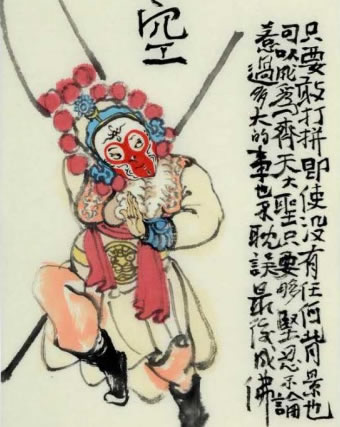 空
只要敢打拼即使没有任何背景也
可以成為齊天大聖只要够堅忍不論
惹過多大的事也不耽誤最後成佛